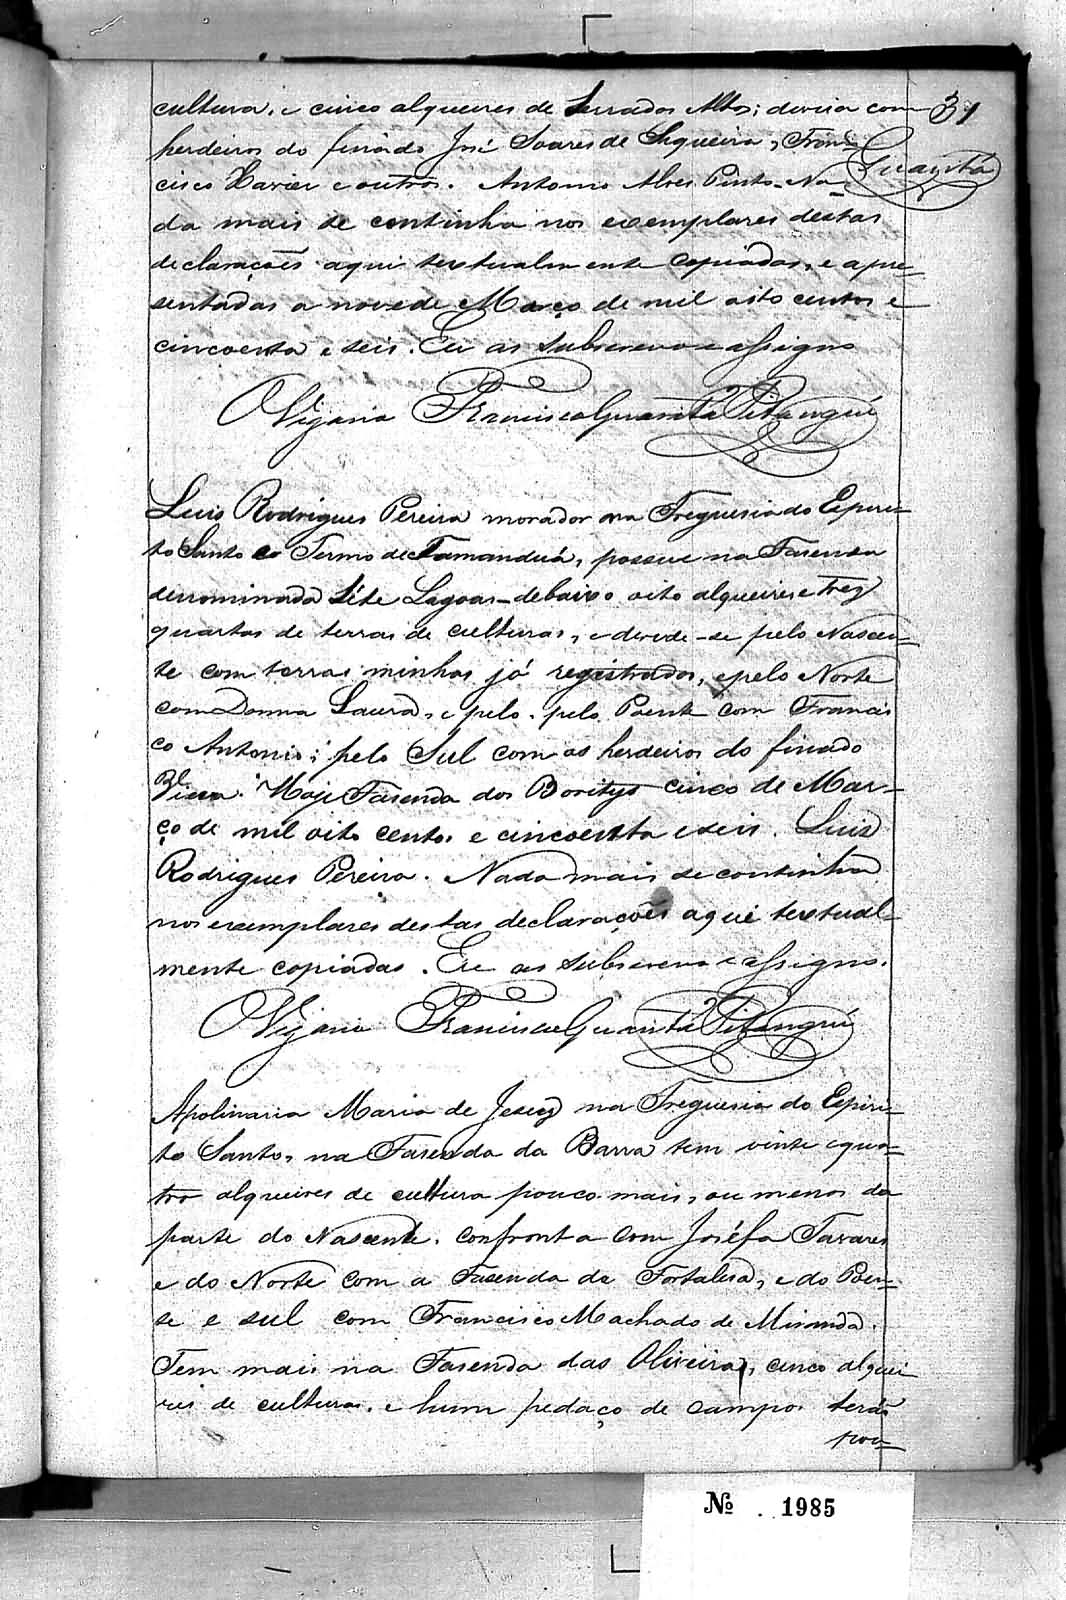 31
Guaritá
cultura, e cinco alqueires de Serrados Altos; devira com
herdeiros do finado José Soares de Siqueira, Fran=
cisco Xavier e outros. Antonio Alves Pinto. Na=
da mais se continha nos exemplares destas
declarações aqui textualmente copiadas, e apre=
sentadas a nove de Março de mil oito centos e
cincoenta e seis. Eu as subscrevo e assigno
O Vigario Francisco Guaritá Pitangui
Luis Rodrigues Pereira morador na Freguesia do Espiri=
to Santo do Termo de Tamanduá, possue na Fasenda
denominada Séte Lagoas-debaixo oito alqueires e trez
quartas de terras de culturas, e devide-se pelo Nascen=
te com terras minhas já registradas, e pelo Norte
com Donna Laura, e pelo, pelo Poente com Francis
co Antonio; pelo Sul com os herdeiros do finado
Vieira. Hoje Fasenda dos Boritys cinco de Mar=
ço de mil oito centos e cincoenta e seis. Luis
Rodrigues Pereira. Nada mais se continha
nos exemplares destas declarações aqui textual=
mente copiadas. Eu as subscrevo e assigno.
O Vigario Francisco Guaritá Pitangui
Apolinaria Maria de Jesuz na Freguesia do Espiri=
to Santo, na Fasenda da Barra tem vinte e qua=
tro alqueires de cultura pouco mais, ou menos da
parte do Nascente, confronta com Joséfa Tavares
e do Norte com a Fasenda da Fortalesa, e do Poen=
te e sul com Francisco Machado de Miranda.
Tem mais na Fasenda das Oliveiras, cinco alquei
res de culturas, e hum pedaço de campos terás
pou=
Nº . 1985